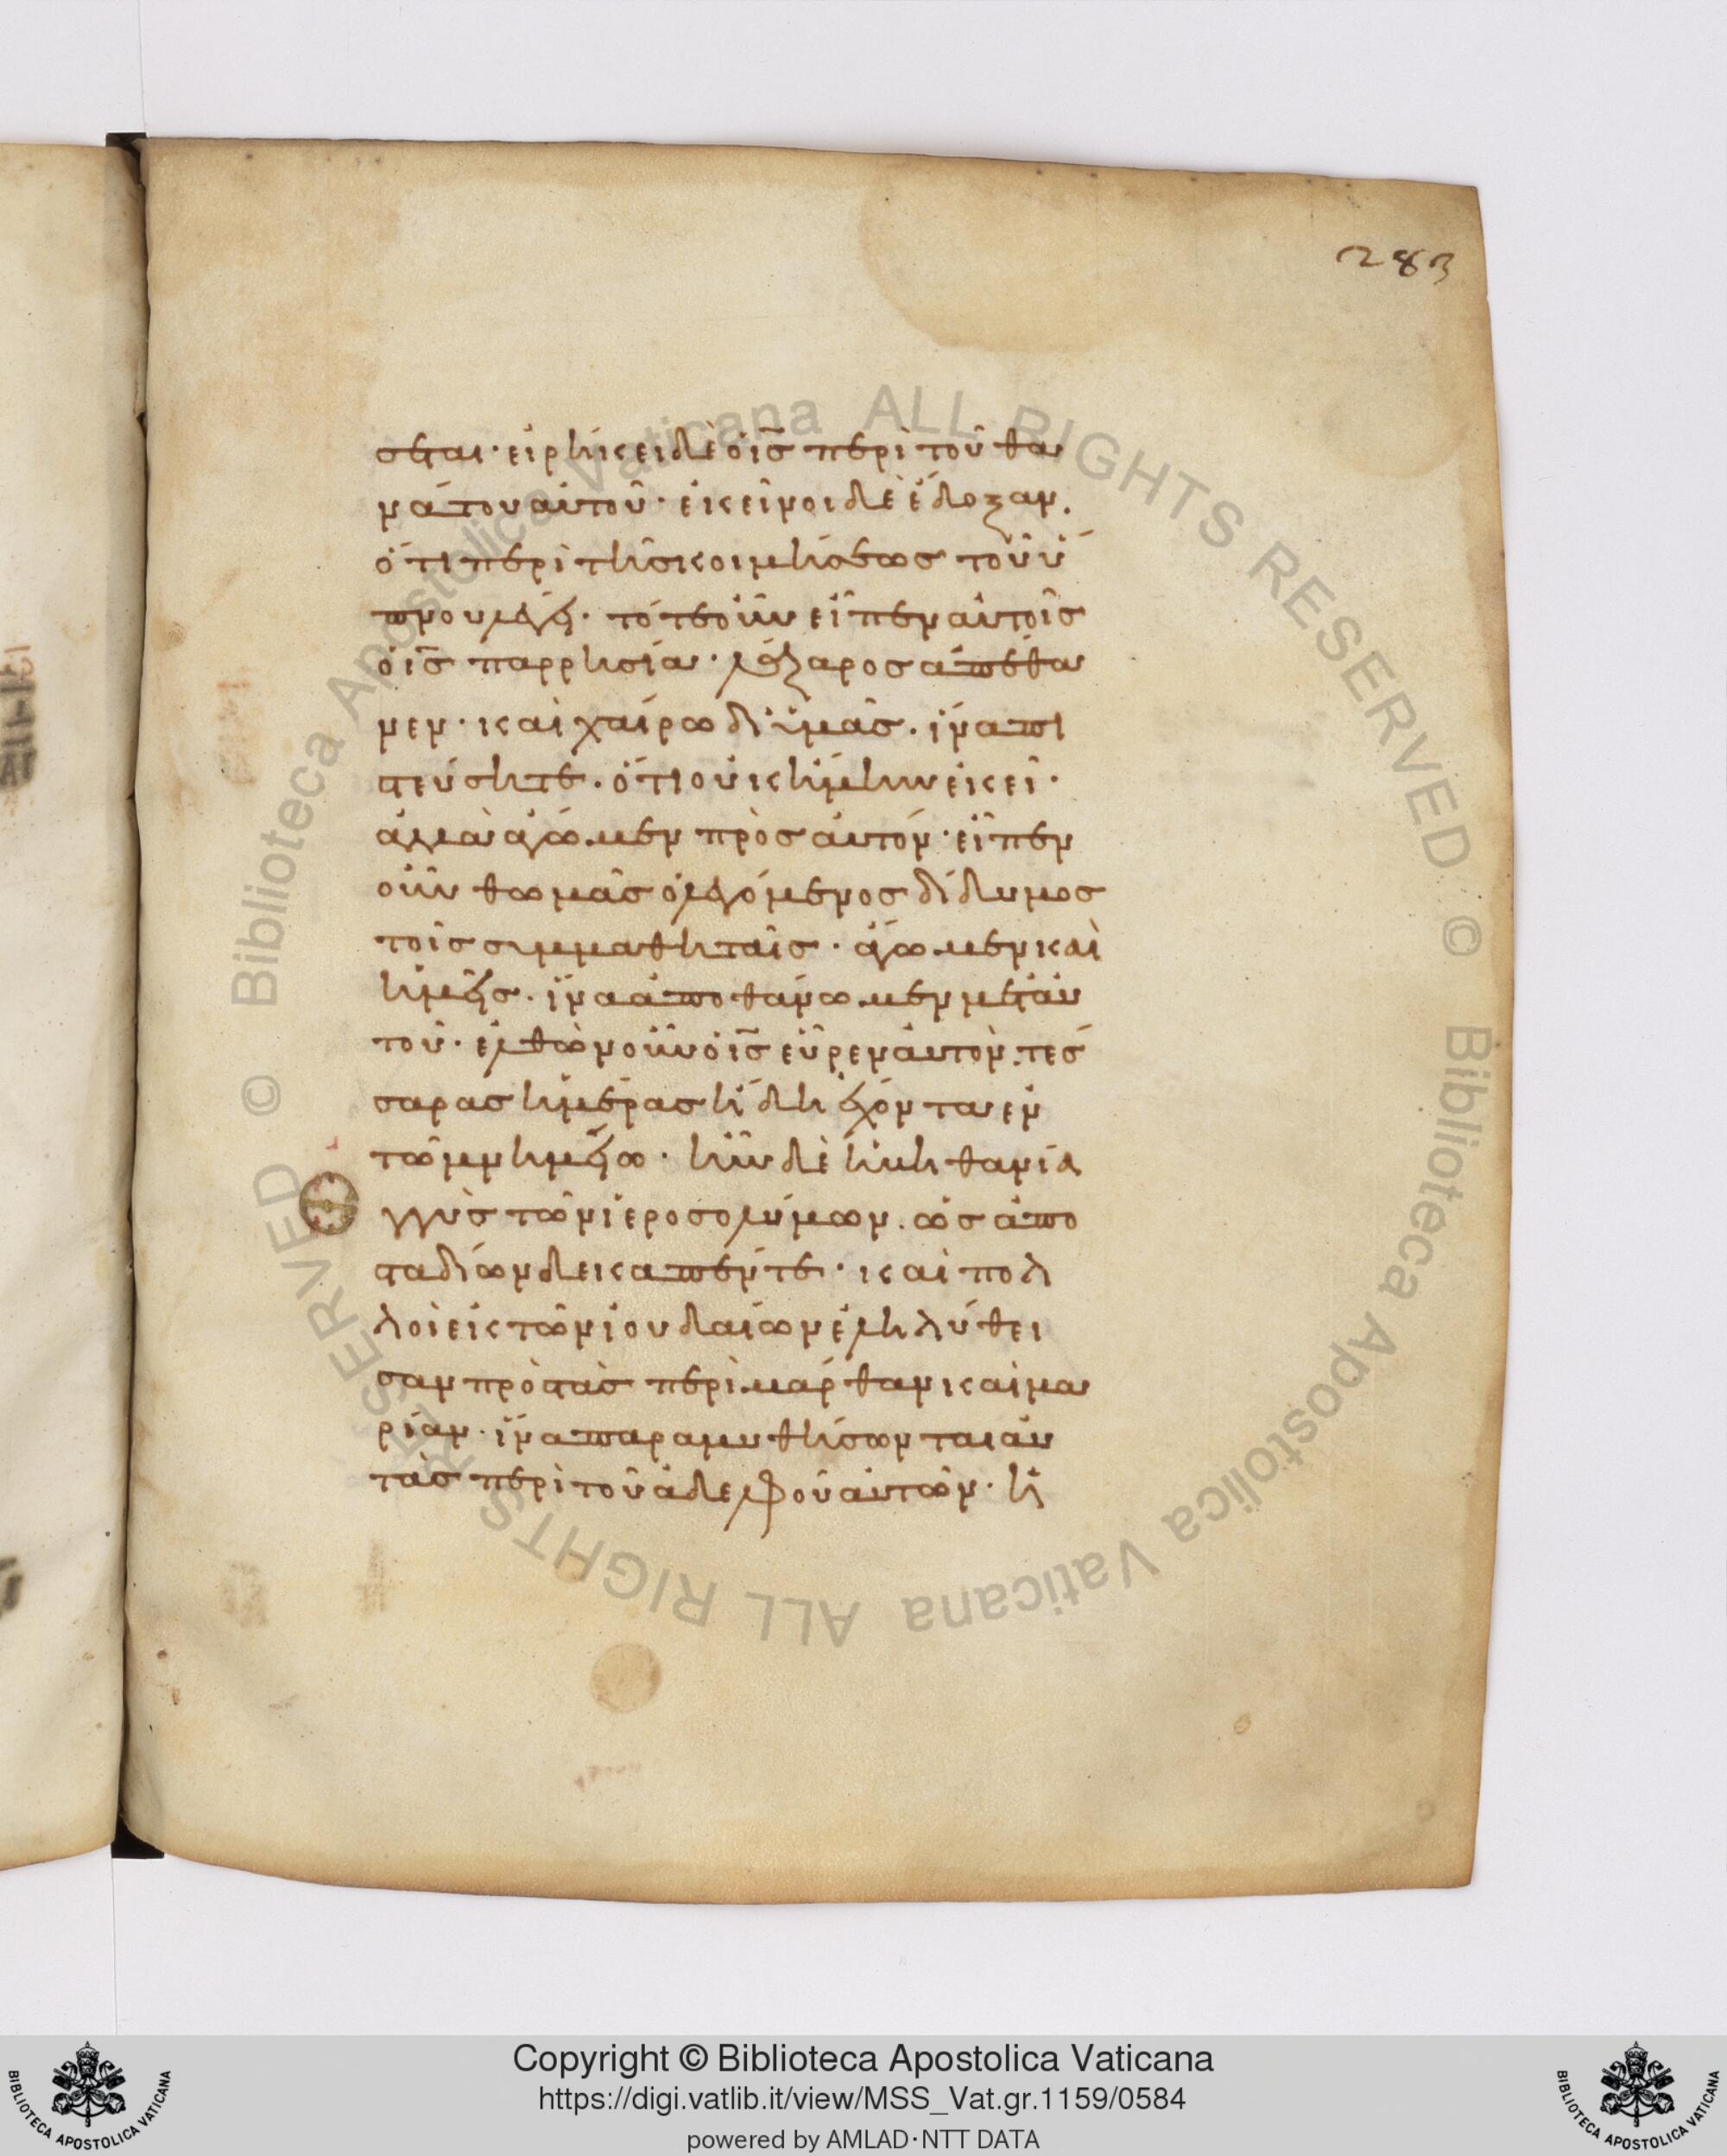 283
σεται· εἰρήκει δὲ ὁ ις̅ περὶ τοῦ θα
νάτου αὐτοῦ· ἐκεῖνοι δὲ ἔδοξαν.
ὅτι περὶ τῆς κοιμήσεως τοῦ ὕ
πνου λέγει· τότε οὖν εἶπεν αὐτοῖς
ὁ ις̅ παρρησία· λάζαρος ἀπέθα
νεν· καὶ χαίρω δι ὑμᾶς. ἵνα πι
στεύσητε. ὅτι οὐκ ἤμην ἐκεῖ·
ἀλλὰ ἄγωμεν πρὸς αὐτόν· εἶπεν
οὖν θωμᾶς ὁ λεγόμενος δίδυμος
τοῖς συμμαθηταῖς· ἄγωμεν καὶ
ἡμεῖς. ἵνα ἀποθάνωμεν μετ αὐ
τοῦ· ἐλθὼν οὖν ὁ ις̅ εὗρεν αὐτὸν. τέσ
σαρας ἡμέρας ἤδη ἔχοντα ἐν
τῶ μνημείω· ἦν δὲ ἡ βηθανία
γγὺς τῶν ἱεροσολύμων. ὡς ἀπο
σταδίων δεκαπέντε· καὶ πολ
λοὶ ἐκ τῶν ἰουδαίων ἐληλύθει
σαν πρὸς τὰς περὶ μάρθαν καὶ μα
ρίαν· ἵνα παραμυθήσωνται αὐ
τὰς περὶ τοῦ ἀδελφοῦ αὐτῶν· ἡ
Biblioteca Apostolica Vaticana ALL RIGHTS RESERVED ©
Biblioteca Apostolica Vaticana ALL RIGHTS RESERVED ©
Copyright © Biblioteca Apostolica Vaticana
https://digi.vatlib.it/view/MSS_Vat.gr.1159/0584
powered by AMLAD·NTT DATA
BIBLIOTECA APOSTOLICA VATICANA
BIBLIOTECA APOSTOLICA VATICANA